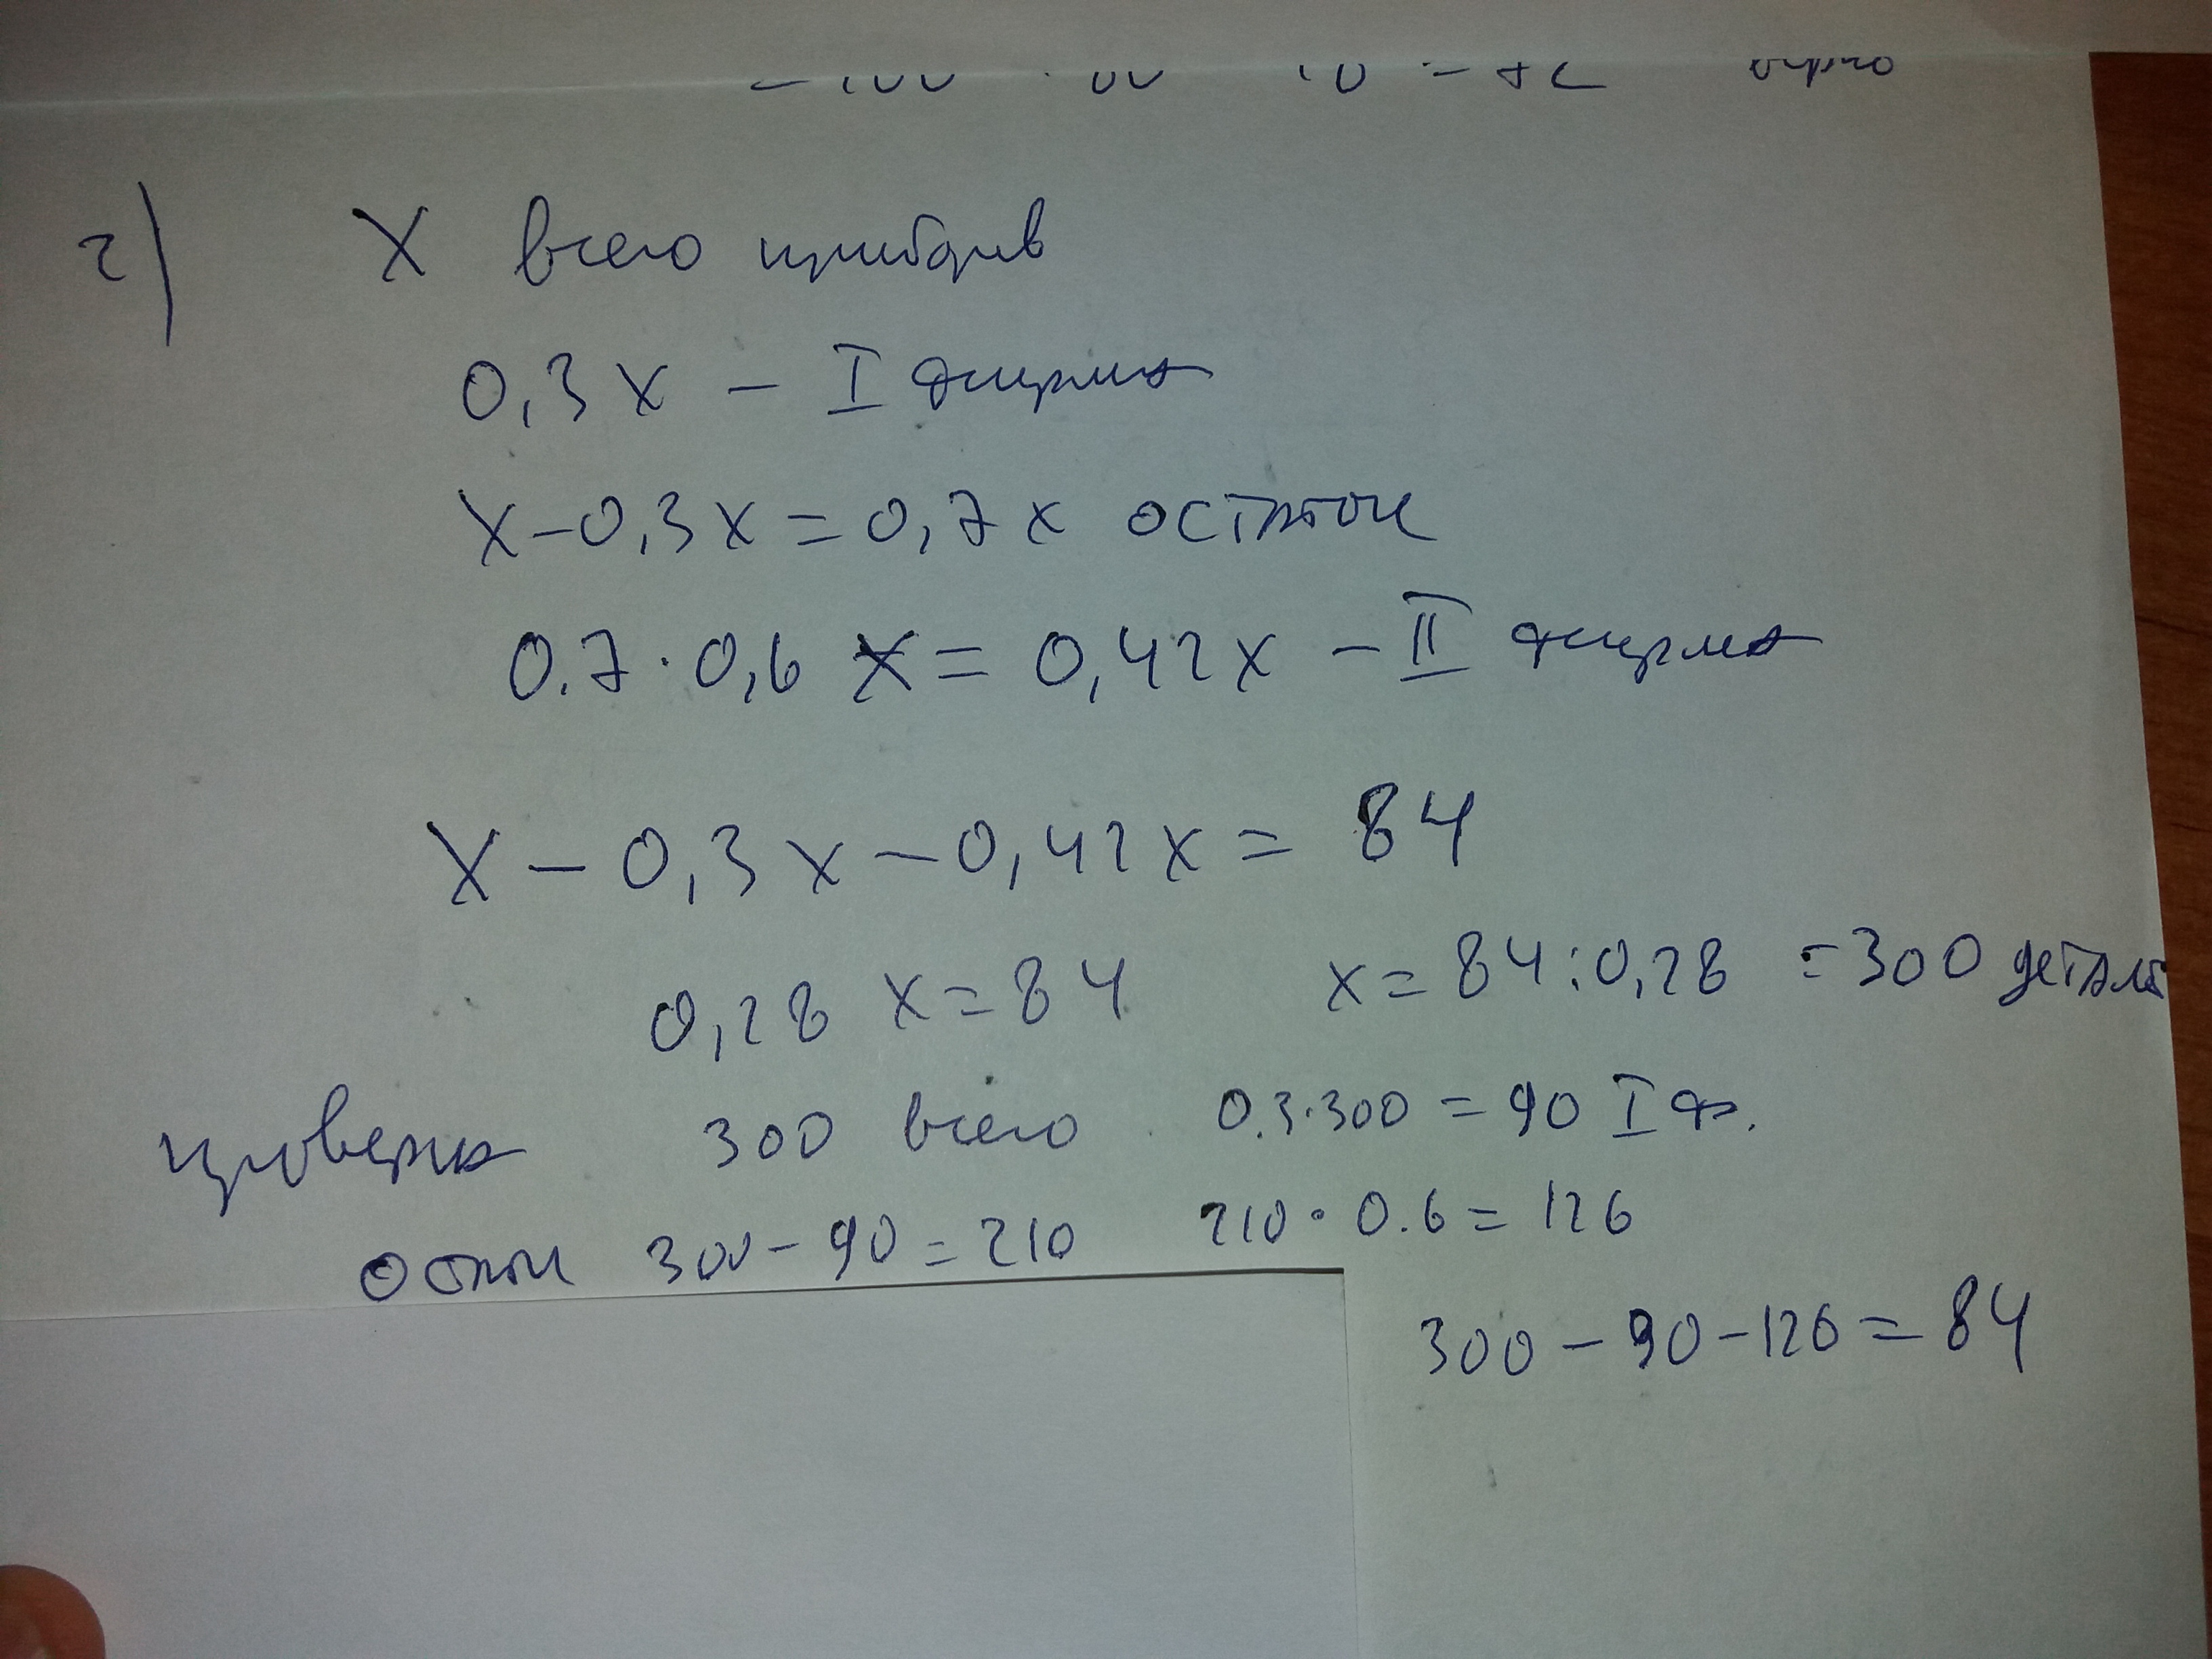 верно
2) X всего приборов
0,3 x – I фирма
x – 0,3 x = 0,7 x остаток
0.7 · 0,6 x = 0,42x – II фирма
X – 0,3 x – 0,42 x = 84
0,28 x = 84 x = 84 : 0,28 = 300 детал
проверка 300 всего 0.3·300 = 90 I ф.
остаток 300 – 90 = 210 210 · 0.6 = 126
300 – 90 – 126 = 84